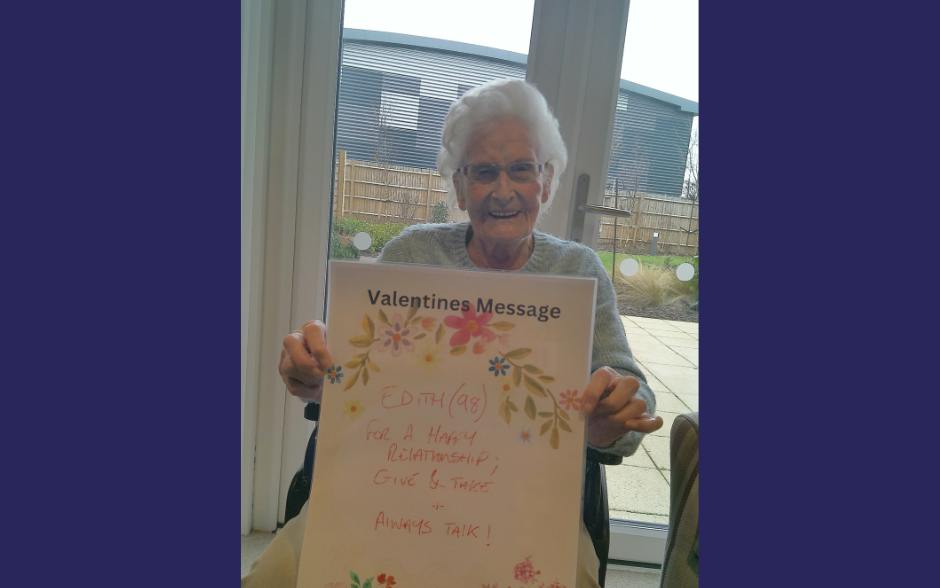 Valentines Message
EDITH (98)
FOR A HAPPY
RELATIONSHIP;
GIVE & TAKE
+
ALWAYS TALK!